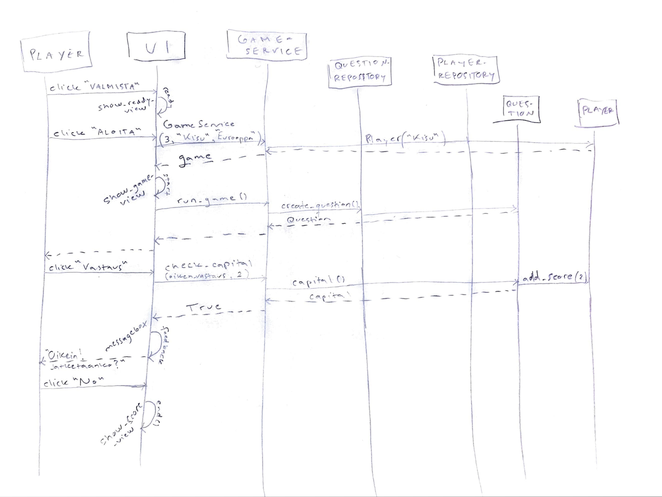 PLAYER
UI
GAME-
SERVICE
QUESTION.
REPOSITORY
PLAYER.
REPOSITORY
QUES-
TION
PLAYER
click "VALMISTA"
show_ready_
view
click "ALOITA"
GameService
(3, "Kisu", "Eurooppa")
Player("Kisu")
game
show_game_
view
run_game()
create_question()
Question
click "Vastaus"
check_capital
capital()
add_score(2)
capital
True
messagebox
"Oikein!
click "No"
show_score
_view